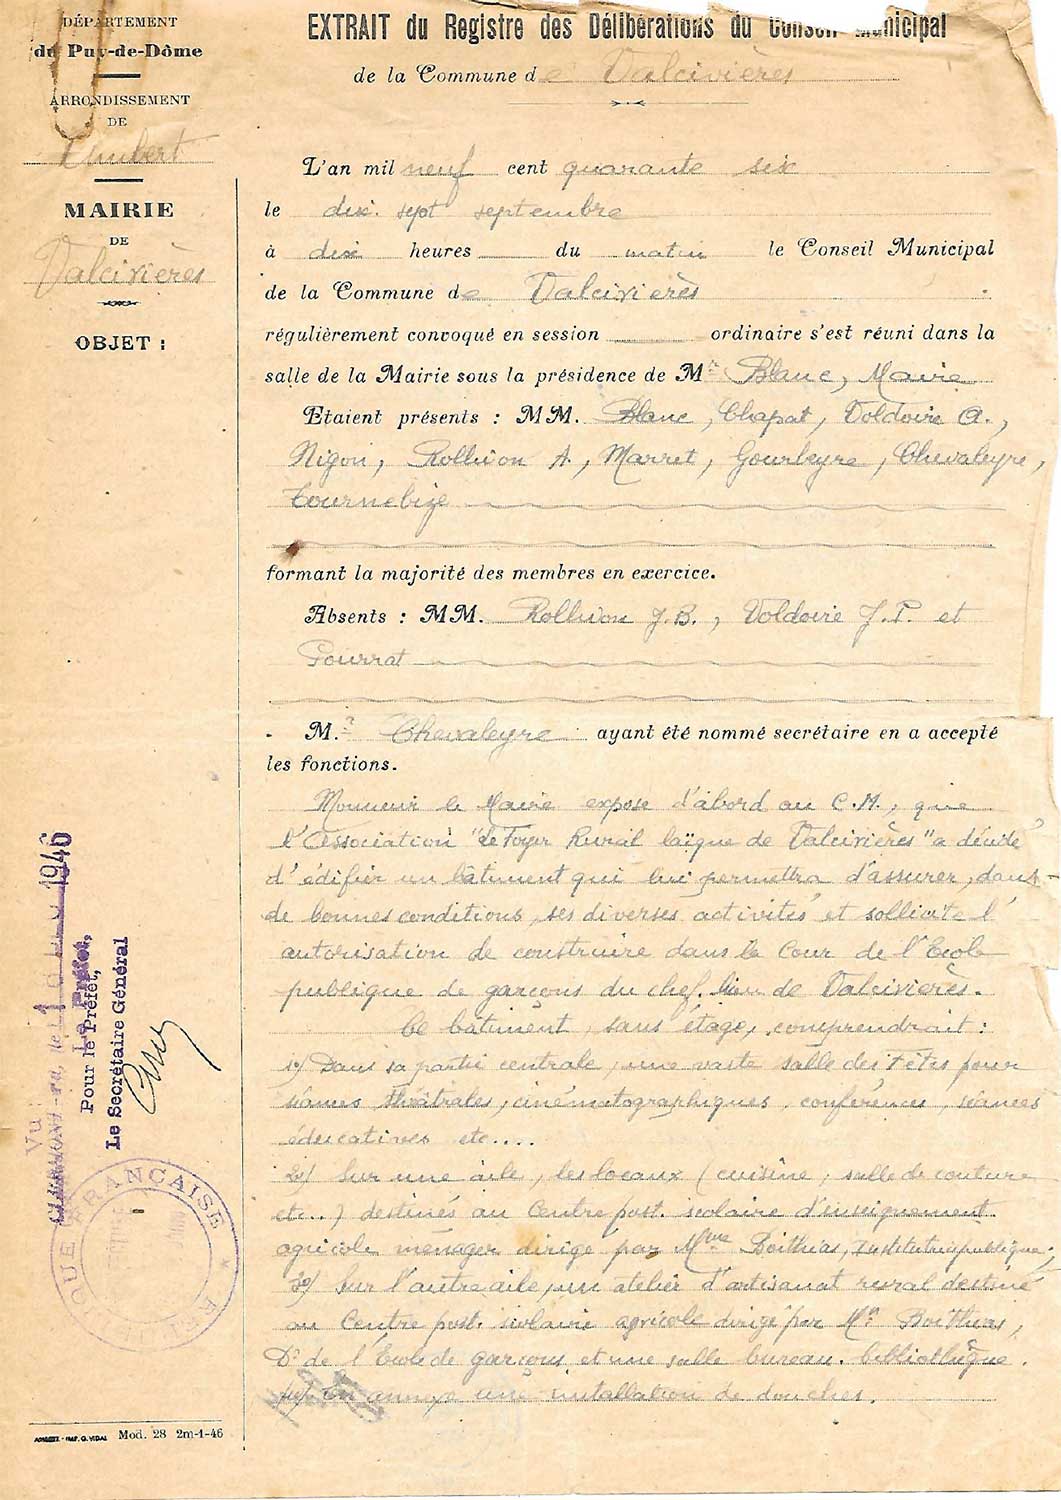 DÉPARTEMENT
du Puy-de-Dôme
ARRONDISSEMENT
DE
Ambert
MAIRIE
DE
Valcivières
OBJET :
EXTRAIT du Registre des Délibérations du Conseil Municipal
de la Commune de Valcivières
L'an mil neuf cent quarante six
le dix. sept septembre
à dix heures du matin le Conseil Municipal
de la Commune de Valcivières
régulièrement convoqué en session ordinaire s'est réuni dans la
salle de la Mairie sous la présidence de Mr Blanc, Maire
Etaient présents : MM. Blanc, Chapat, Voldoire A.,
Nigon, Rollivon A, Marret, Gourbeyre, Chevaleyre,
Tournebize
formant la majorité des membres en exercice.
Absents : MM. Rollivon J.B., Voldoire J.P. et
Pourrat
M.r Chevaleyre ayant été nommé secrétaire en a accepté
les fonctions.
Monsieur le Maire expose d'abord au C.M., que
l'Association "Le Foyer Rural laïque de Valcivières" a décidé
d'édifier un bâtiment qui lui permettra d'assurer, dans
de bonnes conditions, ses diverses activités et sollicite l'
autorisation de construire dans la Cour de l'Ecole
publique de garçons du chef. lieu de Valcivières.
Ce bâtiment, sans étage, comprendrait :
1°) Dans sa partie centrale, une vaste salle des Fêtes pour
séances théâtrales, cinématographiques, conférences, séances
éducatives etc....
2°) Sur une aile, les locaux (cuisine, salle de couture
etc..) destinés au Centre post. scolaire d'enseignement
agricole ménager dirigé par Mme Boithias, Institutrice publique;
3°) Sur l'autre aile, un atelier d'artisanat rural destiné
au Centre post. scolaire agricole dirigé par Mr Boithias,
Dr de l'Ecole de garçons et une salle bureau. bibliothèque.
4°) En annexe une installation de douches.
Vu
1946
Le Préfet,
Pour le Préfet,
Le Secrétaire Général
QUE FRANÇAISE * RÉ
AMBERT - IMP. G. VIDAL Mod. 28 2m-1-46